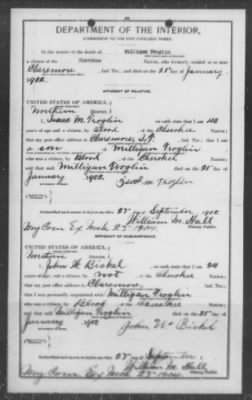 DEPARTMENT OF THE INTERIOR,
COMMISSION TO THE FIVE CIVILIZED TRIBES.
In the matter of the death of Milligan Troglin
a citizen of the Cherokee Nation, who formerly resided at or near
Claremore, Ind. Ter., and died on the 25 day of January
1902.
AFFIDAVIT OF RELATIVE.
UNITED STATES OF AMERICA,
Northern District.
I, Isaac M. Troglin on oath state that I am
years of age and a citizen by Blood of the Cherokee Nation;
that my post office address is Claremore, I.T. Ind. Ter.; that I am
a son of Milligan Troglin
who was a citizen, by Blood of the Cherokee Nation
and that said Milligan Troglin died on the 25 day of
January 1902
Isaac M Troglin
Subscribed and sworn to before me this 22 day of September 1902
William M. Hall
Notary Public.
My Com Ex Mch 23 1904.
AFFIDAVIT OF ACQUAINTANCE.
UNITED STATES OF AMERICA,
Northern District.
I, John W. Bickel on oath state that I am 24
years of age, and a citizen by not of the Cherokee Nation;
that my post office address is Claremore, Ind. Ter.;
that I was personally acquainted with Milligan Troglin
who was a citizen, by Blood of the Cherokee Nation
and that said Milligan Troglin died on the 25 day of
January 1902
John W Bickel
Subscribed and sworn to before me this 22 day of September
William M. Hall
Notary Public.
My Com Ex Mch 23 1904